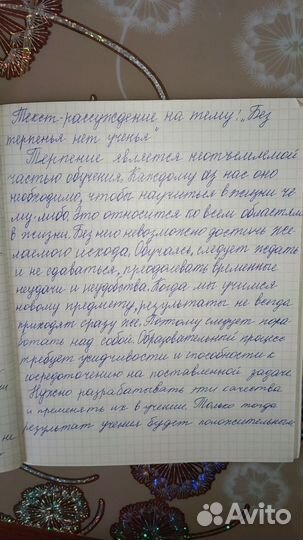 Текст-рассуждение на тему: "Без
терпенья нет ученья"
Терпение является неотъемлемой
частью обучения. Каждому из нас оно
необходимо, чтобы научиться в жизни че
му-либо. Это относится ко всем областям
в жизни. Без него невозможно достичь же
лаемого исхода. Обучаясь, следует ждать
и не сдаваться, преодолевать временные
неудачи и неудобства. Когда мы учимся
новому предмету, результаты не всегда
приходят сразу же. Поэтому следует пора
ботать над собой. Образовательный процесс
требует усидчивости и способности к
сосредоточению на поставленной задаче.
Нужно разрабатывать эти качества
и применять их в учении. Только тогда
результат учения будет положительным
не
Avito